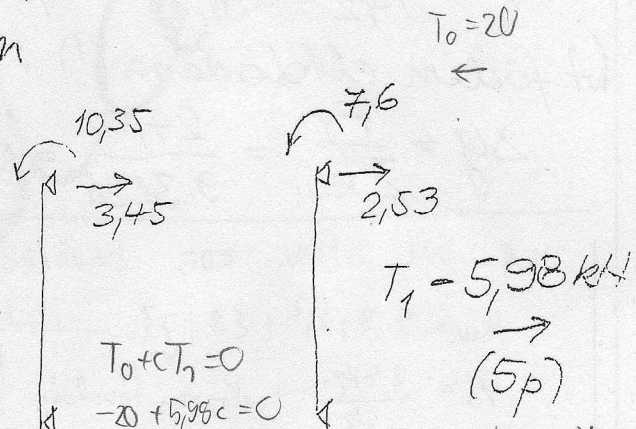 n
T₀=20
←
10,35
7,6
3,45
2,53
T₁ = 5,98 kN
(5p)
T₀+cT₁=0
-20+5,98c=0